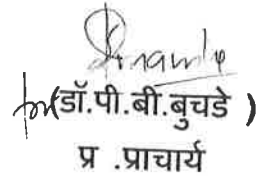 for (डॉ.पी.बी.बुचडे )
प्र .प्राचार्य